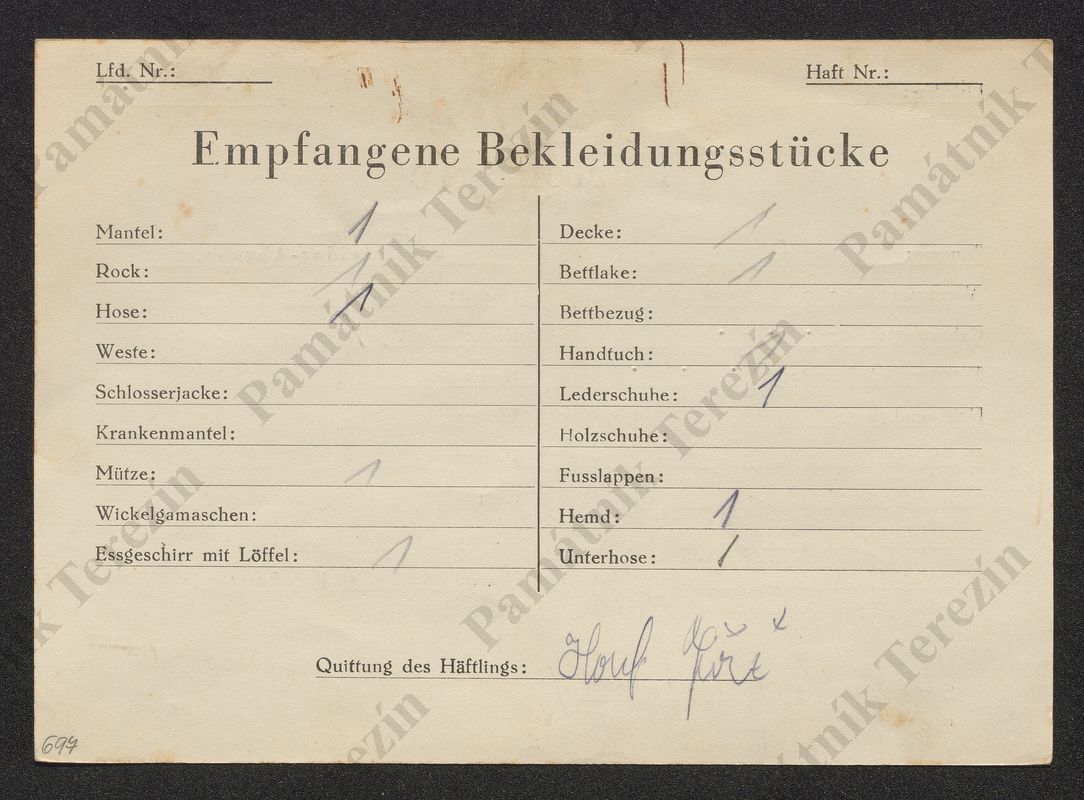 Lfd. Nr.:
Haft Nr.:
Empfangene Bekleidungsstücke
Mantel: 1
Rock: 1
Hose: 1
Weste:
Schlosserjacke:
Krankenmantel:
Mütze: 1
Wickelgamaschen:
Essgeschirr mit Löffel: 1
Decke: 1
Bettlake: 1
Bettbezug:
Handtuch: 1
Lederschuhe: 1
Holzschuhe:
Fusslappen:
Hemd: 1
Unterhose: 1
Quittung des Häftlings:
697
Památník Terezín